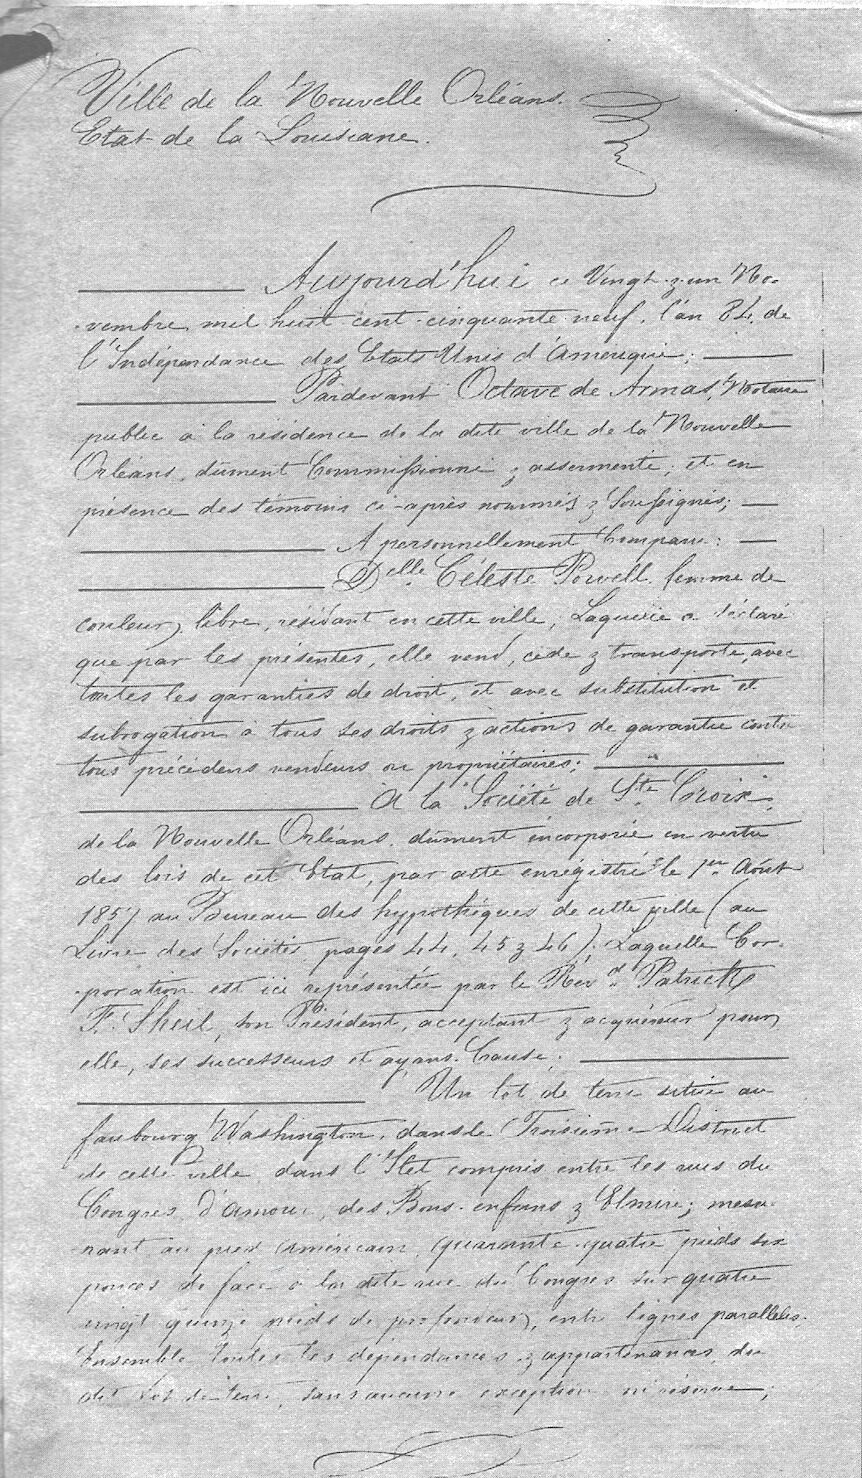 Ville de la Nouvelle Orléans.
Etat de la Louisiane.
Aujourd'hui ce Vingt & un No-
vembre mil huit cent cinquante neuf, l'an 84 de
l'Indépendance des Etats Unis d'Amérique;
Pardevant Octave de Armas, Notaire
public à la résidence de la dite ville de la Nouvelle
Orléans, dûment Commissionné & assermenté, et en
présence des témoins ci-après nommés & Soussignés;
A personnellement Comparu:
Delle Céleste Powell, femme de
couleur libre, résidant en cette ville, Laquelle a déclaré
que par les présentes, elle vend, cède & transporte, avec
toutes les garanties de droit, et avec substitution et
subrogation à tous ses droits & actions de garantie contre
tous précédens vendeurs ou propriétaires:
A la Société de Ste Croix,
de la Nouvelle Orléans, dûment incorporée en vertu
des lois de cet Etat, par acte enrégistré le 1er Août
1857 au Bureau des hypothèques de cette ville (au
Livre des Sociétés, pages 44, 45 & 46). Laquelle Cor-
poration est ici représentée par le Révd Patrick
F. Sheil, son Président, acceptant & acquéreur pour
elle, ses successeurs et ayans Cause;
Un lot de terre situé au
faubourg Washington, dans le Troisième District
de cette ville dans l'Ilet compris entre les rues du
Congrès, d'Amour, des Bons-enfans & Elmire; mesu-
rant au pied américain, quarante-quatre pieds six
pouces de face à la dite rue du Congrès sur quatre
vingt quinze pieds de profondeur, entre lignes parallèles.
Ensemble toutes les dépendances & appartenances du
dit Lot de terre, sans aucune exception ni réserve;